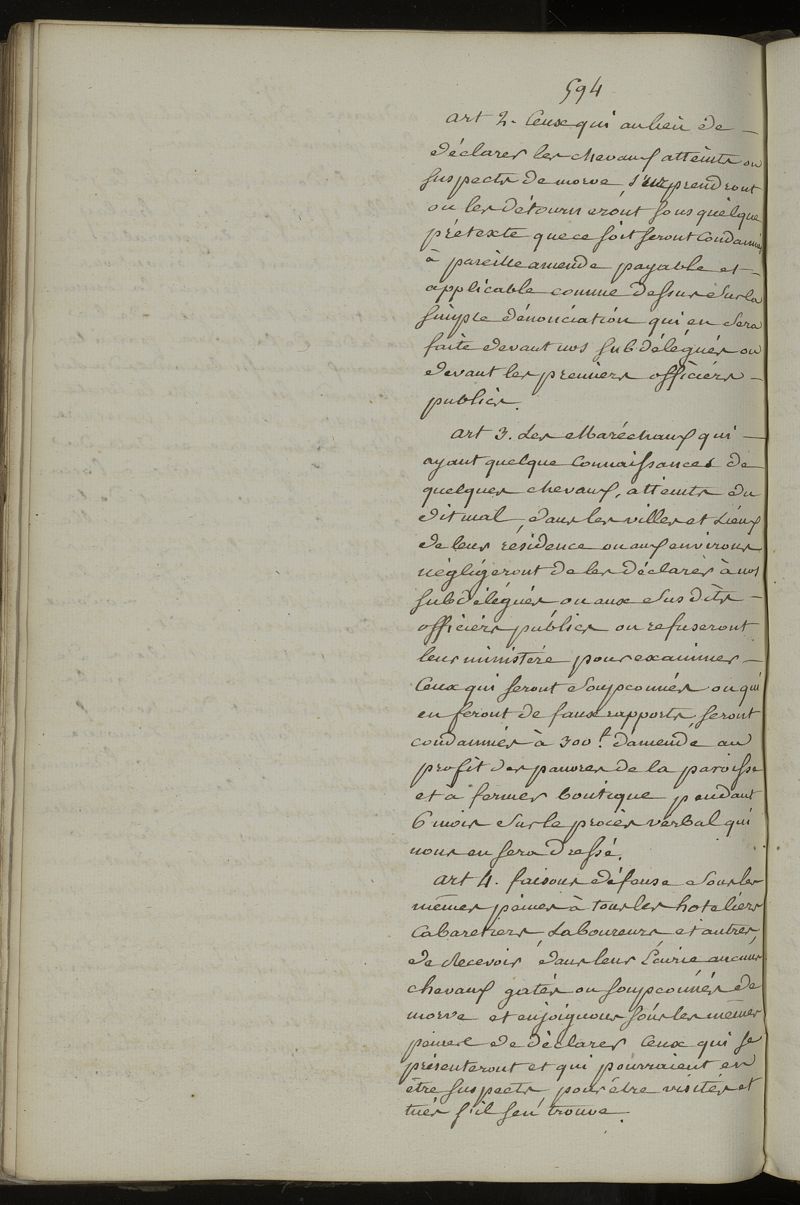 594
art 2. Ceux qui au lieu de —
déclarer les chevaux atteints ou
suspects de morve, s'en prendront
ou les détourneront sous quelque
prétexte que ce soit seront Condamnés
à pareille amende payable et —
applicable comme dessus sur la
simple dénonciation qui en sera
faite devant nos subdélégués ou
devant les premiers officiers —
publics.
art 3. Les Maréchaux qui —
ayant quelque Connaissances de
quelques chevaux, atteints du
dit mal, dans les villes et Lieux
de leur résidence ou aux environs
négligeront de les déclarer à nos
subdélégués ou aux susdits —
officiers publics ou refuseront
leur ministère pour examiner —
Ceux qui seront soupçonnés ou qui
en feront de faux rapports, seront
condamnés à 300 l. d'amende au
profit des pauvres de la paroisse
et à fermer boutique pendant
6 mois sur le procès verbal qui
nous en sera dressé.
art 4. faisons défense sous les
mêmes peines à tous les hoteliers
Cabaretiers, Laboureurs et autres,
de Recevoir dans leur Écurie aucuns
chevaux gatés ou soupçonnés de
morve et enjoignons sous les mêmes
peines de déclarer Ceux qui se
présenteront et qui pourraient en
être suspects, pour être visités et
tués s'il s'en trouve.